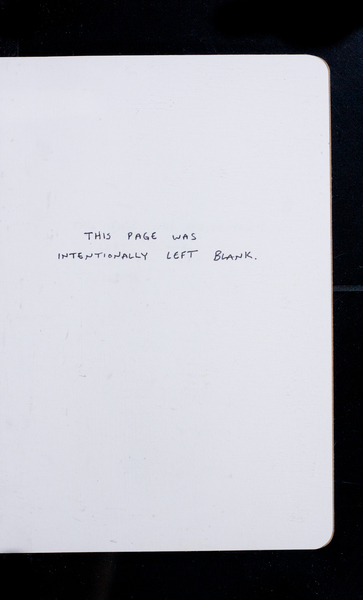 THIS PAGE WAS
INTENTIONALLY LEFT BLANK.